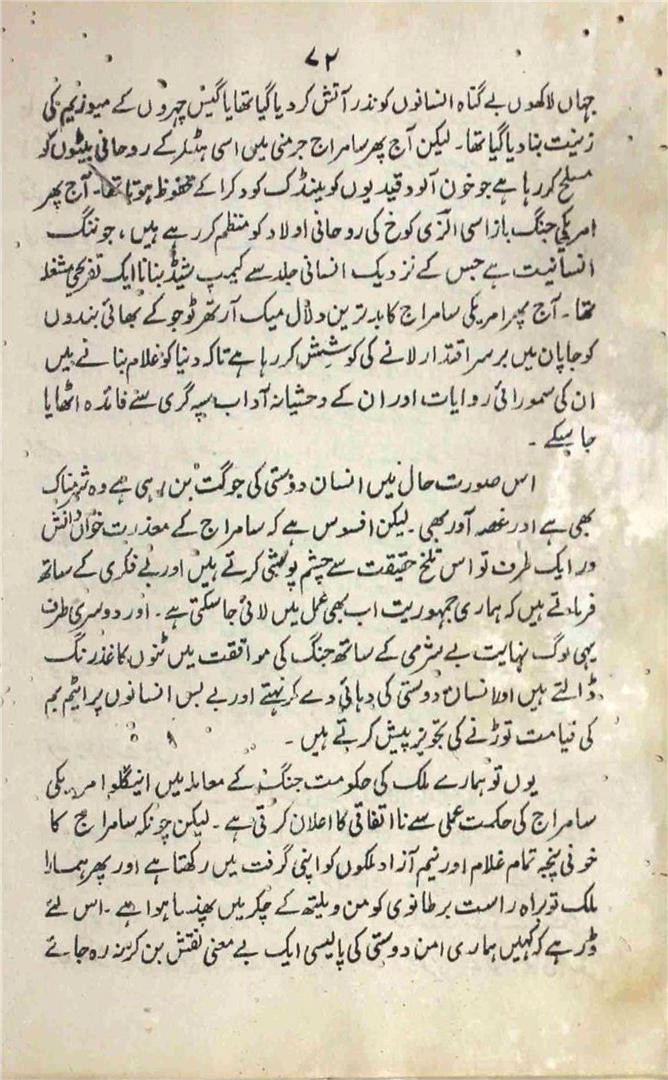 ۷۲
جہاں لاکھوں بے گناہ انسانوں کو نذر آتش کر دیا گیا تھا یا گیس چہروں کے میوزیم کی
زینت بنا دیا گیا تھا۔ لیکن آج پھر سامراج جرمنی میں اسی ہٹلر کے روحانی بیٹوں کو
مسلح کر رہا ہے جو خون آلود قیدیوں کو مینڈک کو دکرا کے محظوظ ہوتا تھا۔ آج پھر
امریکی جنگ باز اسی الزی کوخ کی روحانی اولاد کو منظم کر رہے ہیں، جو ننگ
انسانیت ہے جس کے نزدیک انسانی جلد سے لیمپ شیڈ بنانا ایک تفریحی مشغلہ
تھا۔ آج پھر امریکی سامراج کا بدترین دلال میک آرتھر ٹوجو کے بھائی بندوں
کو جاپان میں برسر اقتدار لانے کی کوشش کر رہا ہے تاکہ دنیا کو غلام بنانے میں
ان کی سمورائی روایات اور ان کے وحشیانہ آداب سپہ گری سے فائدہ اٹھایا
جا سکے۔
اس صورت حال میں انسان دوستی کی جو گت بن رہی ہے وہ شرمناک
بھی ہے اور غصہ آور بھی۔ لیکن افسوس ہے کہ سامراج کے معذرت خواں دانش
ور ایک طرف تو اس تلخ حقیقت سے چشم پوشی کرتے ہیں اور بے فکری کے ساتھ
فرماتے ہیں کہ ہماری جمہوریت اب بھی عمل میں لائی جا سکتی ہے۔ اور دوسری طرف
یہی لوگ نہایت بے شرمی کے ساتھ جنگ کی موافقت میں ٹنوں کا غذ رنگ
ڈالتے ہیں اور انسان دوستی کی دہائی دے کر نہتے اور بے بس انسانوں پر ایٹم بم
کی قیامت توڑنے کی تجویز پیش کرتے ہیں۔
یوں تو ہمارے ملک کی حکومت جنگ کے معاملہ میں انیگلو امریکی
سامراج کی حکمت عملی سے نا اتفاقی کا اعلان کرتی ہے۔ لیکن چونکہ سامراج کا
خونی پنجہ تمام غلام اور نیم آزاد ملکوں کو اپنی گرفت میں رکھتا ہے اور پھر ہمارا
ملک تو براہ راست برطانوی کومن ویلتھ کے چکر میں پھنسا ہوا ہے۔ اس لئے
ڈر ہے کہ کہیں ہماری امن دوستی کی پالیسی ایک بے معنی نقش بن کر نہ رہ جائے